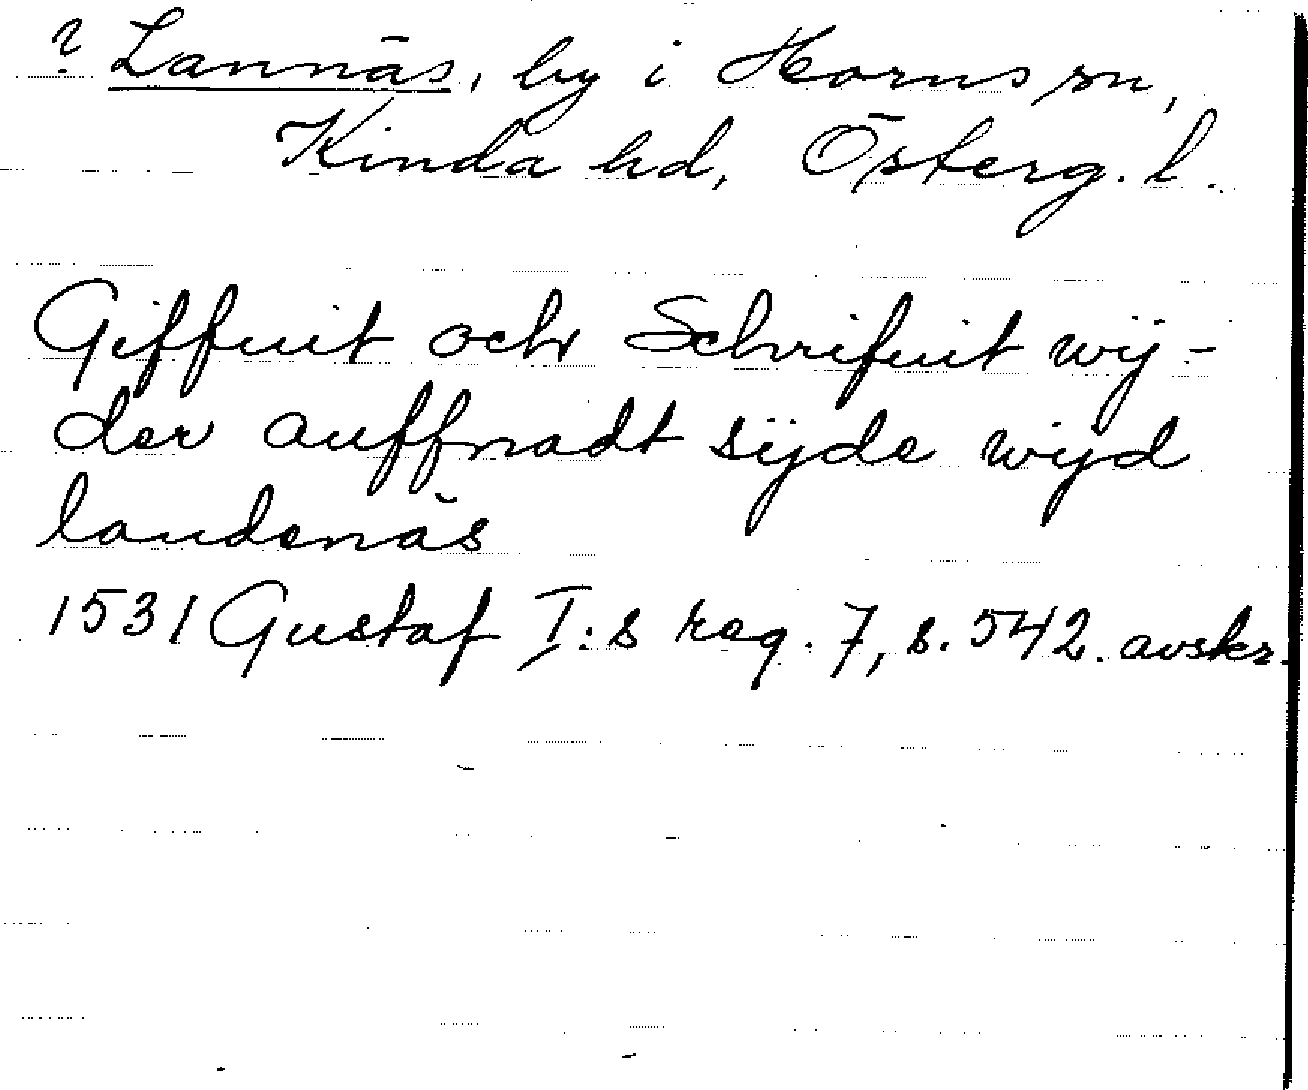 ? Lannäs, by i Horns sn,
Kinda hd, Österg. l.
Giffuit och Schrifuit wÿ-
der auffradt sÿde wÿd
landenäs
1531 Gustaf I:s reg. 7, s. 542. avskr.